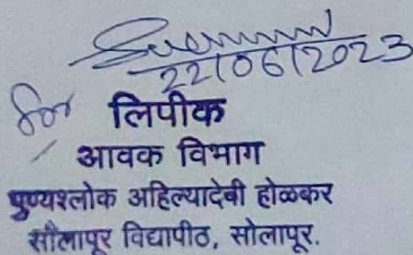 22/06/2023
for लिपीक
आवक विभाग
पुण्यश्लोक अहिल्यादेवी होळकर
सोलापूर विद्यापीठ, सोलापूर.